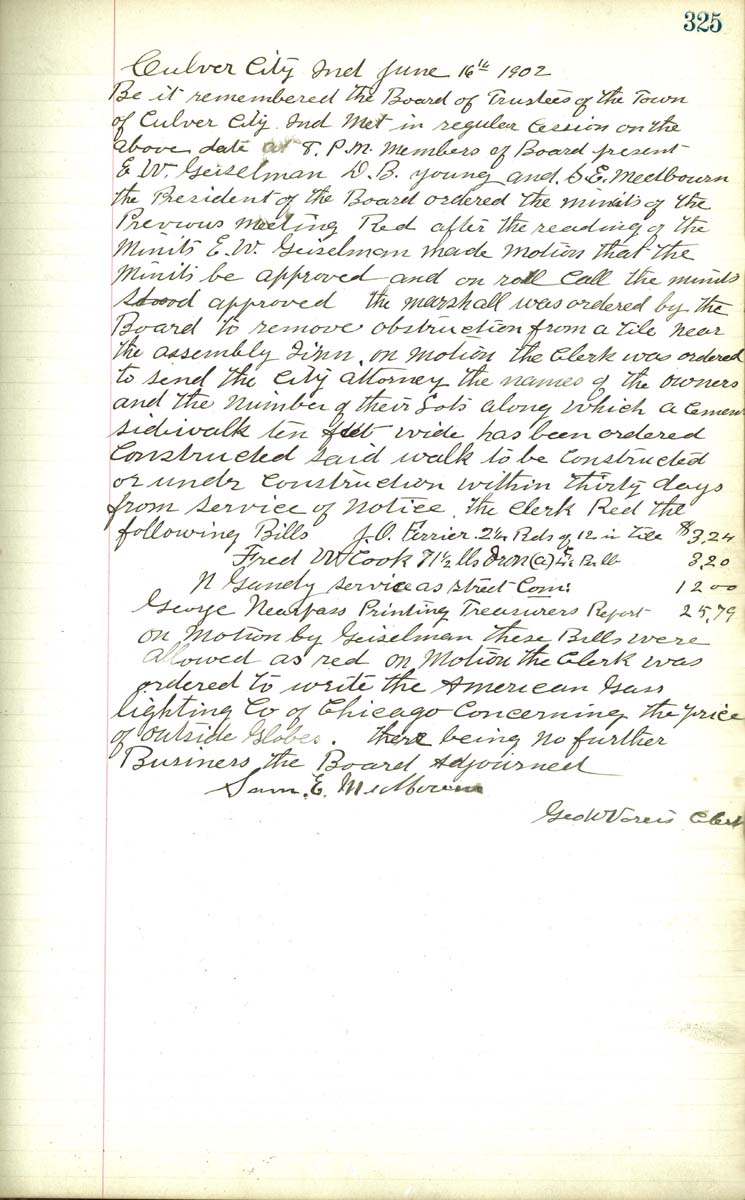 325
Culver City Ind June 16th 1902
Be it remembered the Board of Trustees of the Town
of Culver City Ind Met in regular Cession on the
above date at 8. P.M. Members of Board present
E W. Geiselman D. B. young and S. E. Medbourn
the President of the Board ordered the minits of the
Previous meeting Red after the reading of the
Minits E. W. Geiselman made Motion that the
Minits be approved and on roll Call the minits
Stood approved the marshall was ordered by the
Board to remove obstruction from a tile near
the assembly on Motion the Clerk was ordered
to send the City attorney the names of the owners
and the Number of their Lots along which a Cement
sidewalk ten feet wide has been ordered
Constructed said walk to be Constructed
or under Construction within thirty days
from service of Notice. the Clerk Red the
following Bills J. O. Ferrier. 2 Rds of 12 in Tile $3,24
Fred W Cook 71½ lbs 3,20
N Gandy service as street Com: 12 00
George Nearpass Printing Treasurers Report 25,79
on Motion by Geiselman these Bills were
allowed as red on Motion the Clerk was
ordered to write the American Gass
lighting Co of Chicago Concerning the price
of outside Globes. there being no further
Business the Board Adjourned
Sam. E. Medbourn
Geo W Voreis Clerk